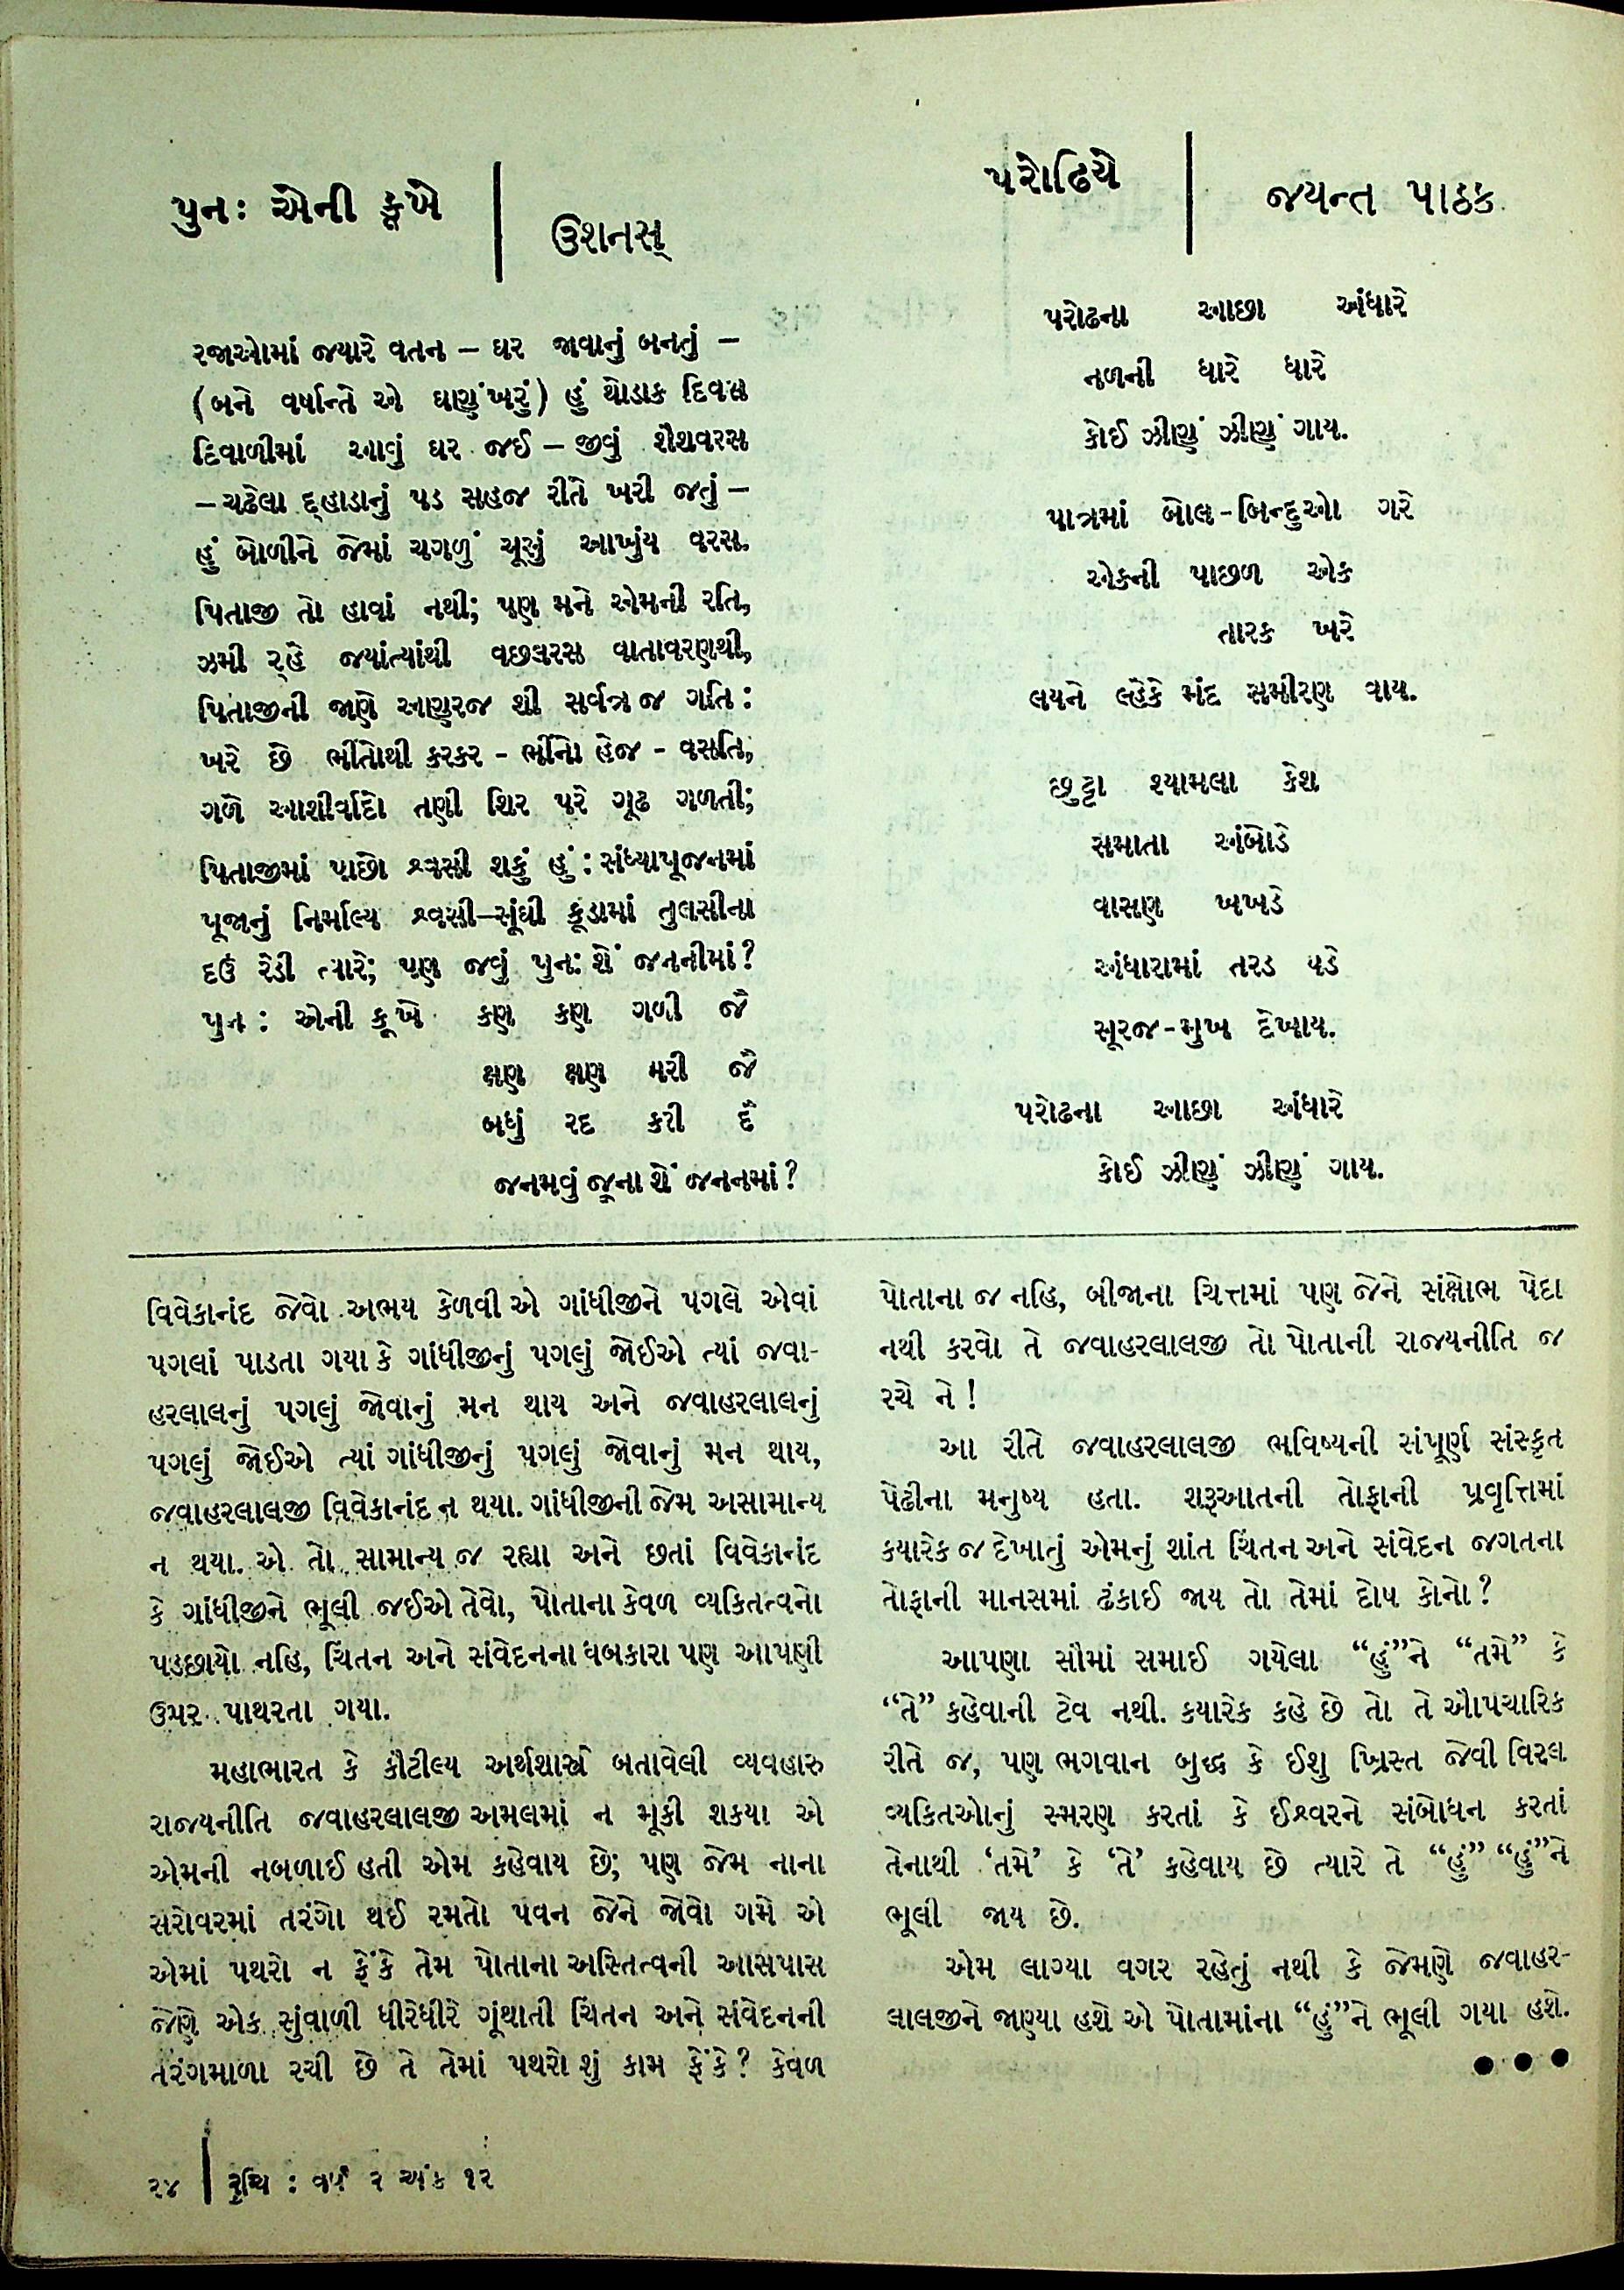 પુનઃ એની કૂખે
ઉશનસ્
રજાઓમાં જ્યારે વતન – ઘર જાવાનું બનતું –
(બને વર્ષાન્તે એ ઘણુંખરું) હું થોડાક દિવસ
દિવાળીમાં આવું ઘર જઈ – જીવું શૈશવરસ
– ચઢેલા દ્હાડાનું પડ સહજ રીતે ખરી જતું –
હું બોળીને જેમાં ચગળું ચૂસું આખુંય વરસ.
પિતાજી તો હાવાં નથી; પણ મને એમની રતિ,
ઝમી ર્‌હે જ્યાંત્યાંથી વછલરસ વાતાવરણથી,
પિતાજીની જાણે અણુરજ શી સર્વત્ર જ ગતિ :
ખરે છે ભીંતોથી કરકર - ભીનો હેજ - વસતિ,
ગળે આશીર્વાદો તણી શિર પરે ગૂઢ ગળતી;
પિતાજીમાં પાછો શ્વસી શકું હું : સંધ્યાપૂજનમાં
પૂજાનું નિર્માલ્ય શ્વસી–સૂંઘી કૂડામાં તુલસીના
દઉં રેડી ત્યારે; પણ જવું પુનઃ શેં જનનીમાં?
પુનઃ એની કૂખે કણ કણ ગળી જૈ
ક્ષણ ક્ષણ મરી જૈ
બધું રદ કરી દૈ
જનમવું જૂના શેં જનનમાં?
પરોઢિયે
જયન્ત પાઠક
પરોઢના આછા અંધારે
નળની ધારે ધારે
કોઈ ઝીણું ઝીણું ગાય.
પાત્રમાં બોલ-બિન્દુઓ ગરે
એકની પાછળ એક
તારક ખરે
લયને લ્હેકે મંદ સમીરણ વાય.
છુટ્ટા શ્યામલા કેશ
સમાતા અંબોડે
વાસણ ખખડે
અંધારામાં તરડ પડે
સૂરજ-મુખ દેખાય.
પરોઢના આછા અંધારે
કોઈ ઝીણું ઝીણું ગાય.
વિવેકાનંદ જેવો અભય કેળવી એ ગાંધીજીને પગલે એવાં
પગલાં પાડતા ગયા કે ગાંધીજીનું પગલું જોઈએ ત્યાં જવા-
હરલાલનું પગલું જોવાનું મન થાય અને જવાહરલાલનું
પગલું જોઈએ ત્યાં ગાંધીજીનું પગલું જોવાનું મન થાય,
જવાહરલાલજી વિવેકાનંદ ન થયા. ગાંધીજીની જેમ અસામાન્ય
ન થયા. એ તો સામાન્ય જ રહ્યા અને છતાં વિવેકાનંદ
કે ગાંધીજીને ભૂલી જઈએ તેવો, પોતાના કેવળ વ્યકિતત્વનો
પડછાયો નહિ, ચિંતન અને સંવેદનના ધબકારા પણ આપણી
ઉપર પાથરતા ગયા.
મહાભારત કે કૌટીલ્ય અર્થશાસ્ત્રે બતાવેલી વ્યવહારુ
રાજ્યનીતિ જવાહરલાલજી અમલમાં ન મૂકી શકયા એ
એમની નબળાઈ હતી એમ કહેવાય છે; પણ જેમ નાના
સરોવરમાં તરંગો થઈ રમતો પવન જેને જોવો ગમે એ
એમાં પથરો ન ફેંકે તેમ પોતાના અસ્તિત્વની આસપાસ
જેણે એક સુંવાળી ધીરેધીરે ગૂંથાતી ચિંતન અને સંવેદનની
તરંગમાળા રચી છે તે તેમાં પથરો શું કામ ફેંકે? કેવળ
પોતાના જ નહિ, બીજાના ચિત્તમાં પણ જેને સંક્ષોભ પેદા
નથી કરવો તે જવાહરલાલજી તો પોતાની રાજ્યનીતિ જ
રચે ને!
આ રીતે જવાહરલાલજી ભવિષ્યની સંપૂર્ણ સંસ્કૃત
પેઢીના મનુષ્ય હતા. શરૂઆતની તોફાની પ્રવૃત્તિમાં
કયારેક જ દેખાતું એમનું શાંત ચિંતન અને સંવેદન જગતના
તોફાની માનસમાં ઢંકાઈ જાય તો તેમાં દોષ કોનો?
આપણા સૌમાં સમાઈ ગયેલા “હું”ને “તમે” કે
“તે” કહેવાની ટેવ નથી. કયારેક કહે છે તો તે ઔપચારિક
રીતે જ, પણ ભગવાન બુદ્ધ કે ઈશુ ખ્રિસ્ત જેવી વિરલ
વ્યકિતઓનું સ્મરણ કરતાં કે ઈશ્વરને સંબોધન કરતાં
તેનાથી ‘તમે’ કે ‘તે’ કહેવાય છે ત્યારે તે “હું” “હું”ને
ભૂલી જાય છે.
એમ લાગ્યા વગર રહેતું નથી કે જેમણે જવાહર-
લાલજીને જાણ્યા હશે એ પોતામાંના “હું”ને ભૂલી ગયા હશે.
● ● ●
૨૪ | રુચિ : વર્ષ ૨ અંક ૧૨